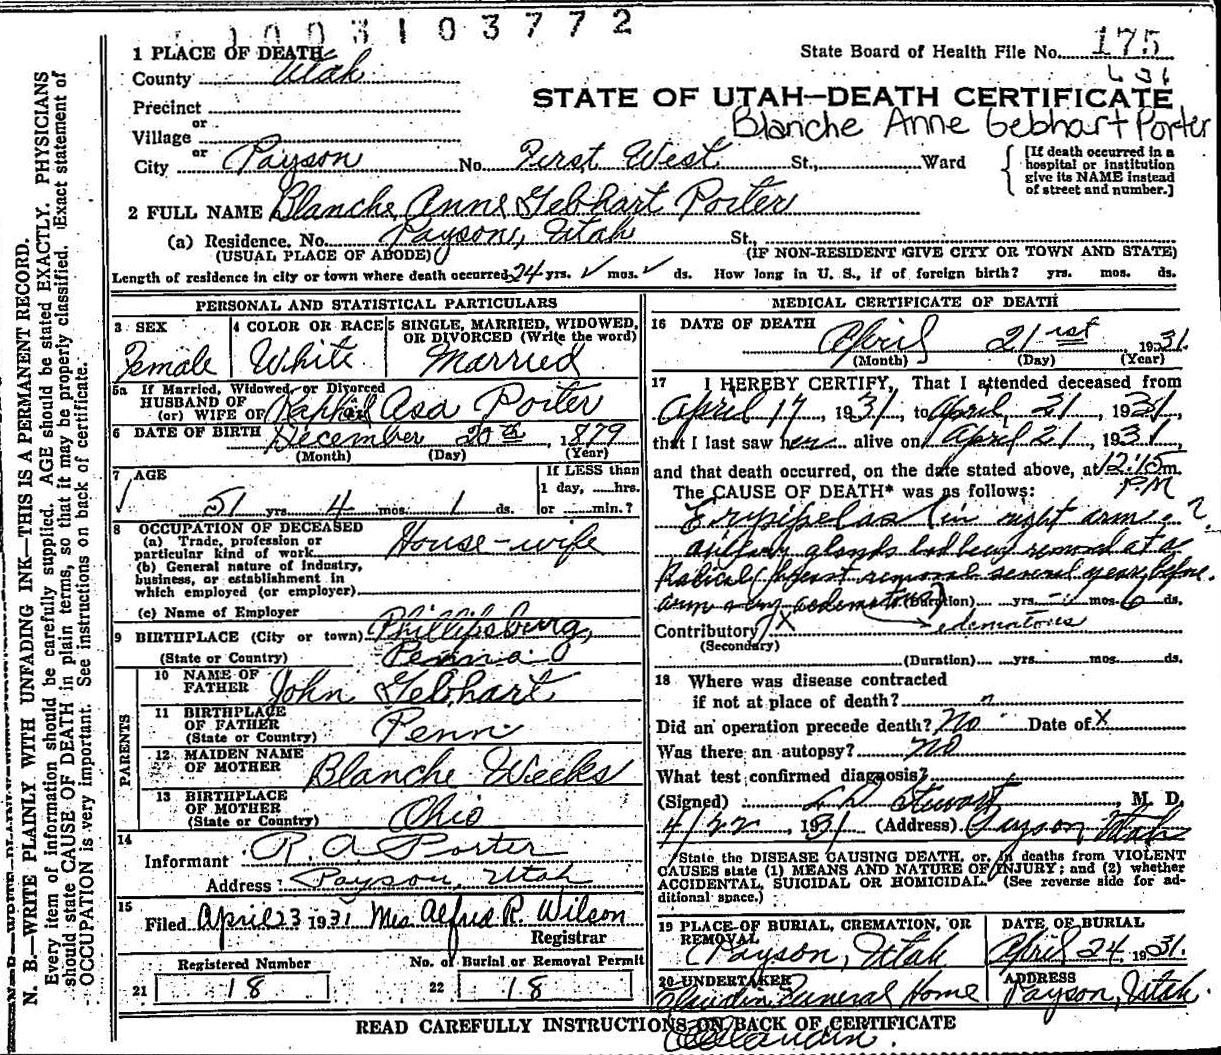 1003103772
1 PLACE OF DEATH
State Board of Health File No. 175
County Utah
Precinct
or
Village
or
STATE OF UTAH—DEATH CERTIFICATE
Blanche Anne Gebhart Porter
City Payson No. First West St., Ward
[If death occurred in a hospital or institution give its NAME instead of street and number.]
2 FULL NAME Blanche Anne Gebhart Porter
(a) Residence. No. Payson, Utah St.,
(USUAL PLACE OF ABODE) (IF NON-RESIDENT GIVE CITY OR TOWN AND STATE)
Length of residence in city or town where death occurred 24 yrs. ✓ mos. ✓ ds. How long in U. S., if of foreign birth? yrs. mos. ds.
PERSONAL AND STATISTICAL PARTICULARS
3 SEX
Female
4 COLOR OR RACE
White
5 SINGLE, MARRIED, WIDOWED, OR DIVORCED (Write the word)
Married
5a If Married, Widowed or Divorced
HUSBAND OF
(or) WIFE OF Asa Porter
6 DATE OF BIRTH December 20th, 1879
(Month) (Day) (Year)
7 AGE
51 yrs. 4 mos. 1 ds.
If LESS than
1 day, hrs.
or min.?
8 OCCUPATION OF DECEASED
(a) Trade, profession or
particular kind of work House-wife
(b) General nature of industry,
business, or establishment in
which employed (or employer)
(c) Name of Employer
9 BIRTHPLACE (City or town) Phillipsburg,
(State or Country) Penna
PARENTS
10 NAME OF
FATHER John Gebhart
11 BIRTHPLACE
OF FATHER
(State or Country) Penn
12 MAIDEN NAME
OF MOTHER Blanche Weeks
13 BIRTHPLACE
OF MOTHER
(State or Country) Ohio
14
Informant R. A. Porter
Address Payson, Utah
15
Filed April 23 1931 Mrs Alfred R. Wilson
Registrar
Registered Number
21 18
No. of Burial or Removal Permit
22 18
MEDICAL CERTIFICATE OF DEATH
16 DATE OF DEATH
April 21st 1931.
(Month) (Day) (Year)
17 I HEREBY CERTIFY, That I attended deceased from
April 17, 1931, to April 21, 1931,
that I last saw her alive on April 21, 1931,
and that death occurred, on the date stated above, at 12:15 m.
PM
The CAUSE OF DEATH* was as follows:
Erysipelas (in right arm ?
axillary glands had been removed at a
Radical breast removal several years before.
arm very oedematous) (Duration) yrs. mos. 6 ds.
Contributory X edematous
(Secondary)
(Duration) yrs. mos. ds.
18 Where was disease contracted
if not at place of death?
Did an operation precede death? No Date of X
Was there an autopsy? no
What test confirmed diagnosis?
(Signed) L D Stewart, M. D.
4/22 1931 (Address) Payson Utah
*State the DISEASE CAUSING DEATH, or, in deaths from VIOLENT
CAUSES state (1) MEANS AND NATURE OF INJURY; and (2) whether
ACCIDENTAL, SUICIDAL OR HOMICIDAL. (See reverse side for ad-
ditional space.)
19 PLACE OF BURIAL, CREMATION, OR
REMOVAL
Payson, Utah
DATE OF BURIAL
April 24 1931.
20 UNDERTAKER
Claudin Funeral Home
ADDRESS
Payson, Utah.
READ CAREFULLY INSTRUCTIONS ON BACK OF CERTIFICATE
N. B.—WRITE PLAINLY WITH UNFADING INK—THIS IS A PERMANENT RECORD.
Every item of information should be carefully supplied. AGE should be stated EXACTLY. PHYSICIANS
should state CAUSE OF DEATH in plain terms, so that it may be properly classified. Exact statement of
OCCUPATION is very important. See instructions on back of certificate.